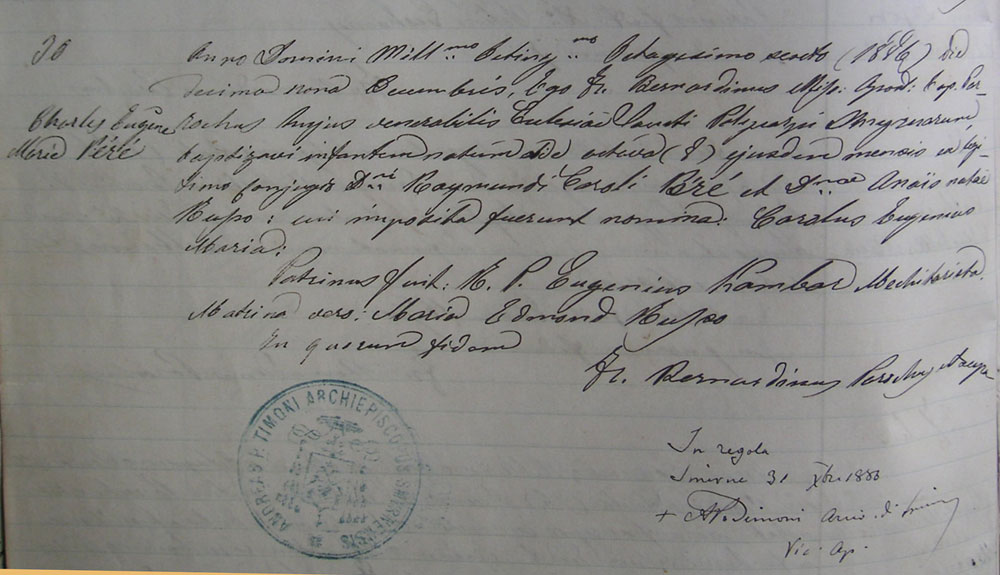 36
Charles Eugene
Marie Péré
Anno Domini Mill.mo Octing.mo Octagesimo sexto (1886) die
decima nona Decembris, Ego Fr. Bernardinus Miss: Apost: Cap. Par-
rochus hujus venerabilis Ecclesiae Sancti Policarpi Smyrnarum
baptizavi infantem natum die octava (8) ejusdem mensis ex legi-
timo conjugio D.ni Raymundi Caroli Péré et D.nae Anaïs natae
Russo: cui imposita fuerunt nomina: Carolus Eugenius
Maria:
Patrinus fuit: R. P. Eugenius Kambar Mechitarista.
Matrina vero: Maria Edmond Russo
In quorum fidem
Fr. Bernardinus Parochus
ANDREAS P. TIMONI ARCHIEPISCOPUS SMYRNENSIS
In regola
Smirne 31 Xbre 1886
+ A P Timoni Arciv. di Smirne
Vic. Ap.